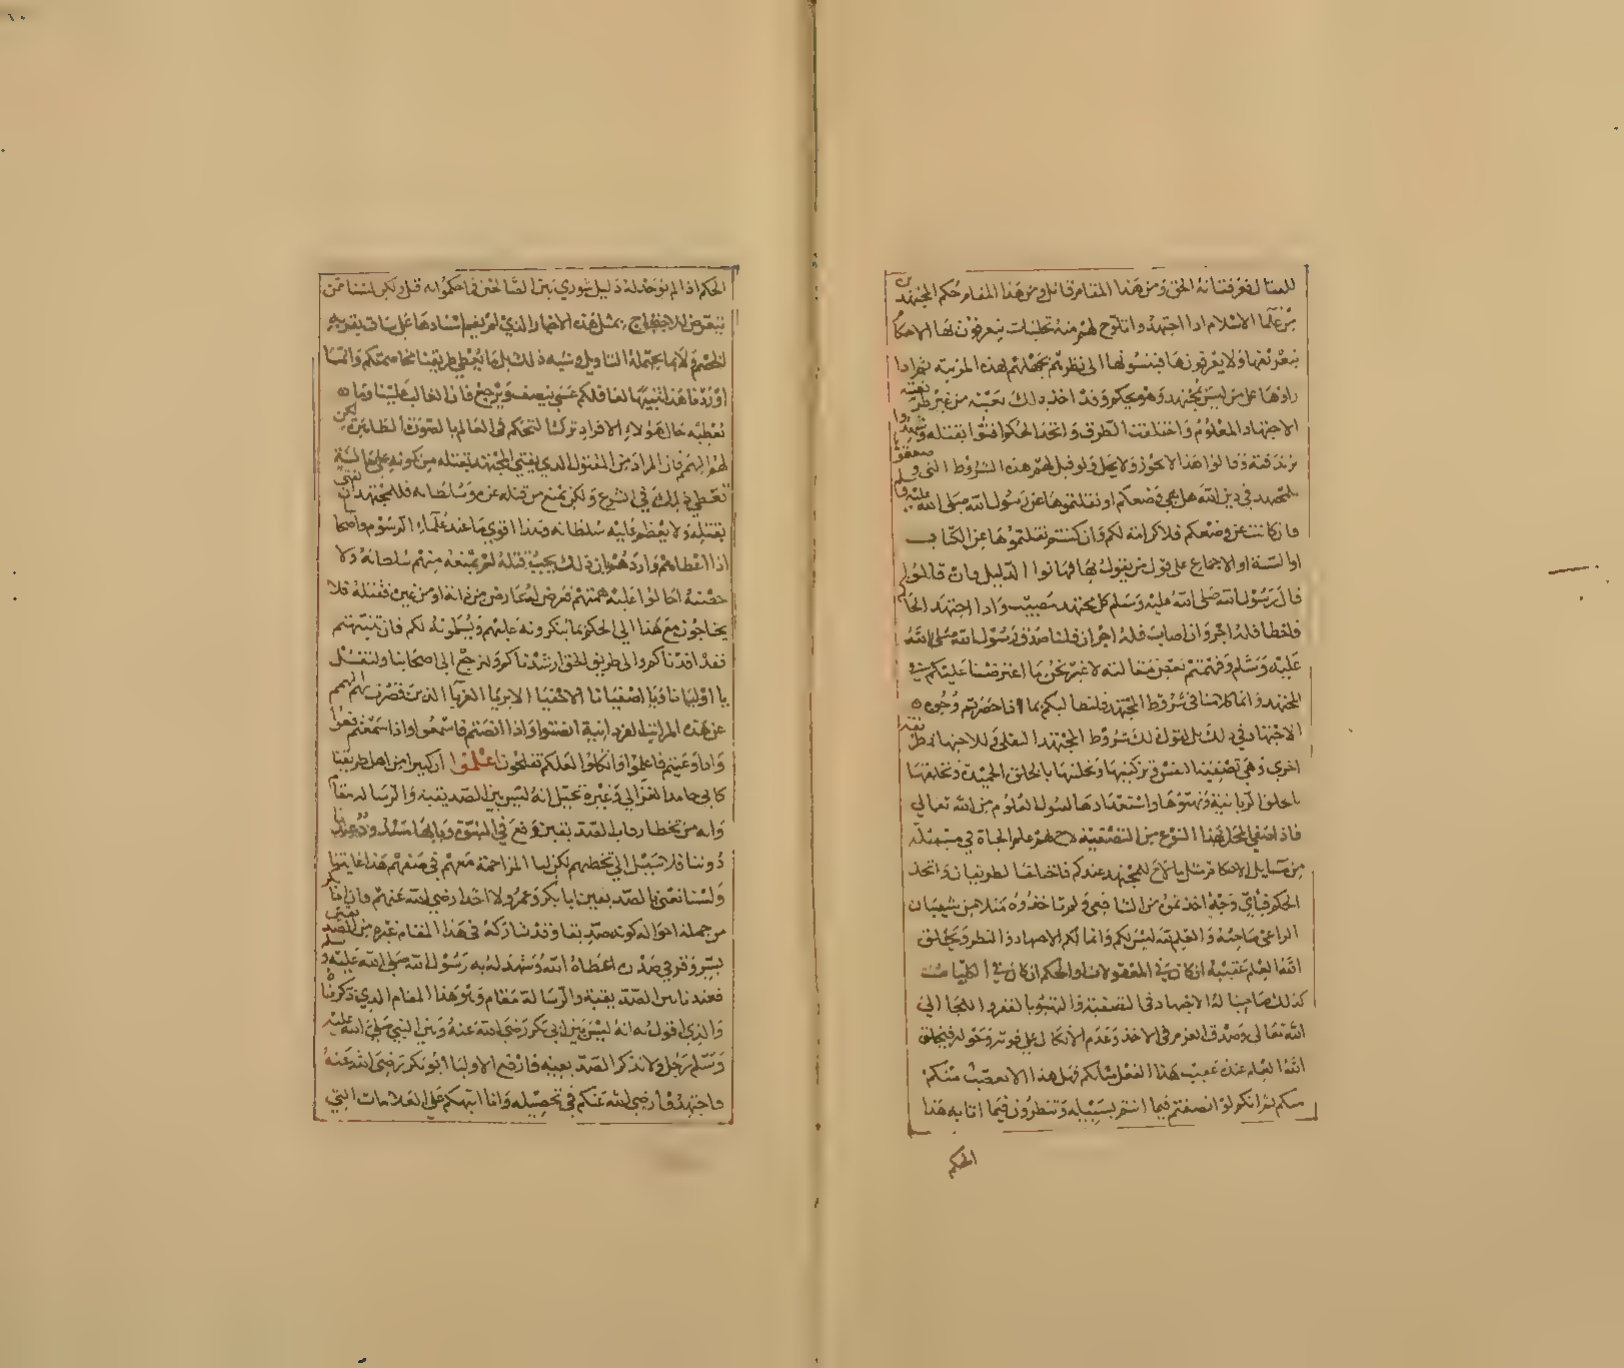 للعنا لغرفتانه الحق ومن هذا المقام قائل ومن هذا المقام حكم المجتهدين
من علما الاسلام اذا اجتهدوا تلوح لهم منه تجليات يعرفون بها الاحكام
ولا يعرفونها فينسبونها الى نظرهم لجهلهم بهذه المرتبة ثم اذا
راوها على من ليس بمجتهد وهو يحكم وقد اخذ ذلك بعينه من غير طريقته
الاجتهاد المعلوم واختلفت الطرق واتحد الحكم افتوا بقتله وشهدوا
بزندقته وقالوا هذا لا يجوز ولا يحل ولو قيل لهم هذه الشروط التي وصفتموها
للمجتهد في دين الله هل هي من وضعكم او نقلتموها عن رسول الله صلى الله عليه وسلم
فان كانت عن وضعكم فلا كرامة لكم وان كنتم نقلتموها عن الكتاب
او السنة او الاجماع على قول من يقول بها فهاتوا الدليل فان قالوا لكم
قال رسول الله صلى الله عليه وسلم كل مجتهد مصيب واذا اجتهد الحاكم
فاخطا فله اجر وان اصاب فله اجران قلنا صدق رسول الله صلى الله
عليه وسلم وفهمتم بعض مقالته لا غير نحن ما اعترضنا عليكم في
المجتهد وانما كلامنا في شروط المجتهد قلنا لكم بما انا حضرتم وجوه
الاجتهاد في ذلك بل نقول ذلك شروط المجتهد العقلي وللاجتهاد طريقة
اخرى وهي تصفية النفس وتزكيتها وتحليتها بالخلق الحميدة وتخلقها
باخلاق الربانية وتهيؤها واستعدادها لقبول العلوم من الله تعالى
فاذا صفى المحل بهذا النوع من التصفية لاح لهم علم النجاة في مسئلة
من مسايل الاحكام مثل ما لاح للمجتهد عندكم فاختلفا لطريقان واتحد
الحكم فباي وجه اخذ ممن من الشافعي ولم تاخذوه مثلا من شيبان
الراعي صاحبه والعلم قد ليس لكم وانما لكم الاجتهاد والنظر ويخلق
الله العلم عقيبه ان كان في المعقولات او الحكم ان كان في الظنيات
كذلك صاحبنا له الاجتهاد في التصفية والتهيؤ بالفقر واللجا الى
الله تعالى وصدق العزم في الاخذ وعدم الاتكال على قوته وحوله فيخلق
الله العلم عنده عقيب هذا الفعل مثلكم فهل هذا الا تعصب منكم
منكم ثم انكم لو انصفتم فيما انتم بسبيله وتنظرون فيما اتا به هذا
الحكم
الحكم اذا لم يوجد له دليل شوري بين الصالحين في احكموا به قتل ولكن لسنا ممن
يتعرض للاحتجاج بمثل هذه الاخبار الذي لم يقم اسنادها على ساق يقر به
الخصم ولا بما يحتمله التاويل وشبه ذلك بل ما تعطي طريقنا مخاصمتكم وانما
اوردنا هذا تنبيها لعاقلكم عسى ينصف ويرجع فان الغالب علينا وما
تعطيه حال هؤلاء الافراد تركنا لنحكم في العالم بالصون الظاهر لكن
لهؤ الهمم فان المراد من المقتول الذي يفتي المجتهد بقتله من كونه على حالة
تعطي ذلك في الشرع ولكن يمنع من قتله عن سلطانه فالمجتهد ان يفتي
بقتله ولا يعظم عليه سلطانه وهذا اقوى ما عند علماء الرسوم واصحابنا
اذا اعطاهم واردهم بان ذلك يجب قتله لم يمنعه منهم سلطانه ولا
حصنه احالوا عليه همتهم فعرض له عارض من ذاته او من غيره فقتله فلا
يحتاجون مع هذا الى الحكم بما ينكرونه عليهم ويسلمونه لكم فان تنبهتم
فقد افدناكم والى طريق الحق ارشدناكم ولنرجع الى اصحابنا ولنقل
يا اوليانا ويا اصفيانا الاتقيا الابريا الغربا الذين قصرت بهم الهمم
عن هذه المراتب الفردانية انصتوا واذا انصتم فاسمعوا واذا سمعتم فعوا
واذا وعيتم فاعلموا واتكلوا لعلكم تفلحون اعلموا ان كثيرا من اهل طريقنا
كابي حامد الغزالي وغيره تخيل انه ليس بين الصديقية والرسالة مقام
وانه من تخطا رقاب الصديقين وقع في النبوة وبابها مسدود
دوننا فلا سبيل الى تخطيهم لكن لنا المزاحمة معهم في صفهم هذا غايتنا
ولسنا نعني بالصديقين ابا بكر وعمر ولا احدا رضي الله عنهم فان ابا بكر
من جملة احواله كونه صديقا وقد شاركه في هذا المقام غيره من الصديقين
بسر وقر في صدره اعطاه الله وشهد له به رسول الله صلى الله عليه وسلم
فعندنا بين الصديقية والرسالة مقام وهو هذا المقام الذي ذكرناه
والذي اقول به انه ليس بين ابي بكر رضي الله عنه وبين النبي صلى الله عليه
وسلم رجل ولا نذكر الصديقية فارفع الاوليا ابو بكر رضي الله عنه
فاجتهدوا رضي الله عنكم في تحصيله وانا انبهكم على العلامات التي